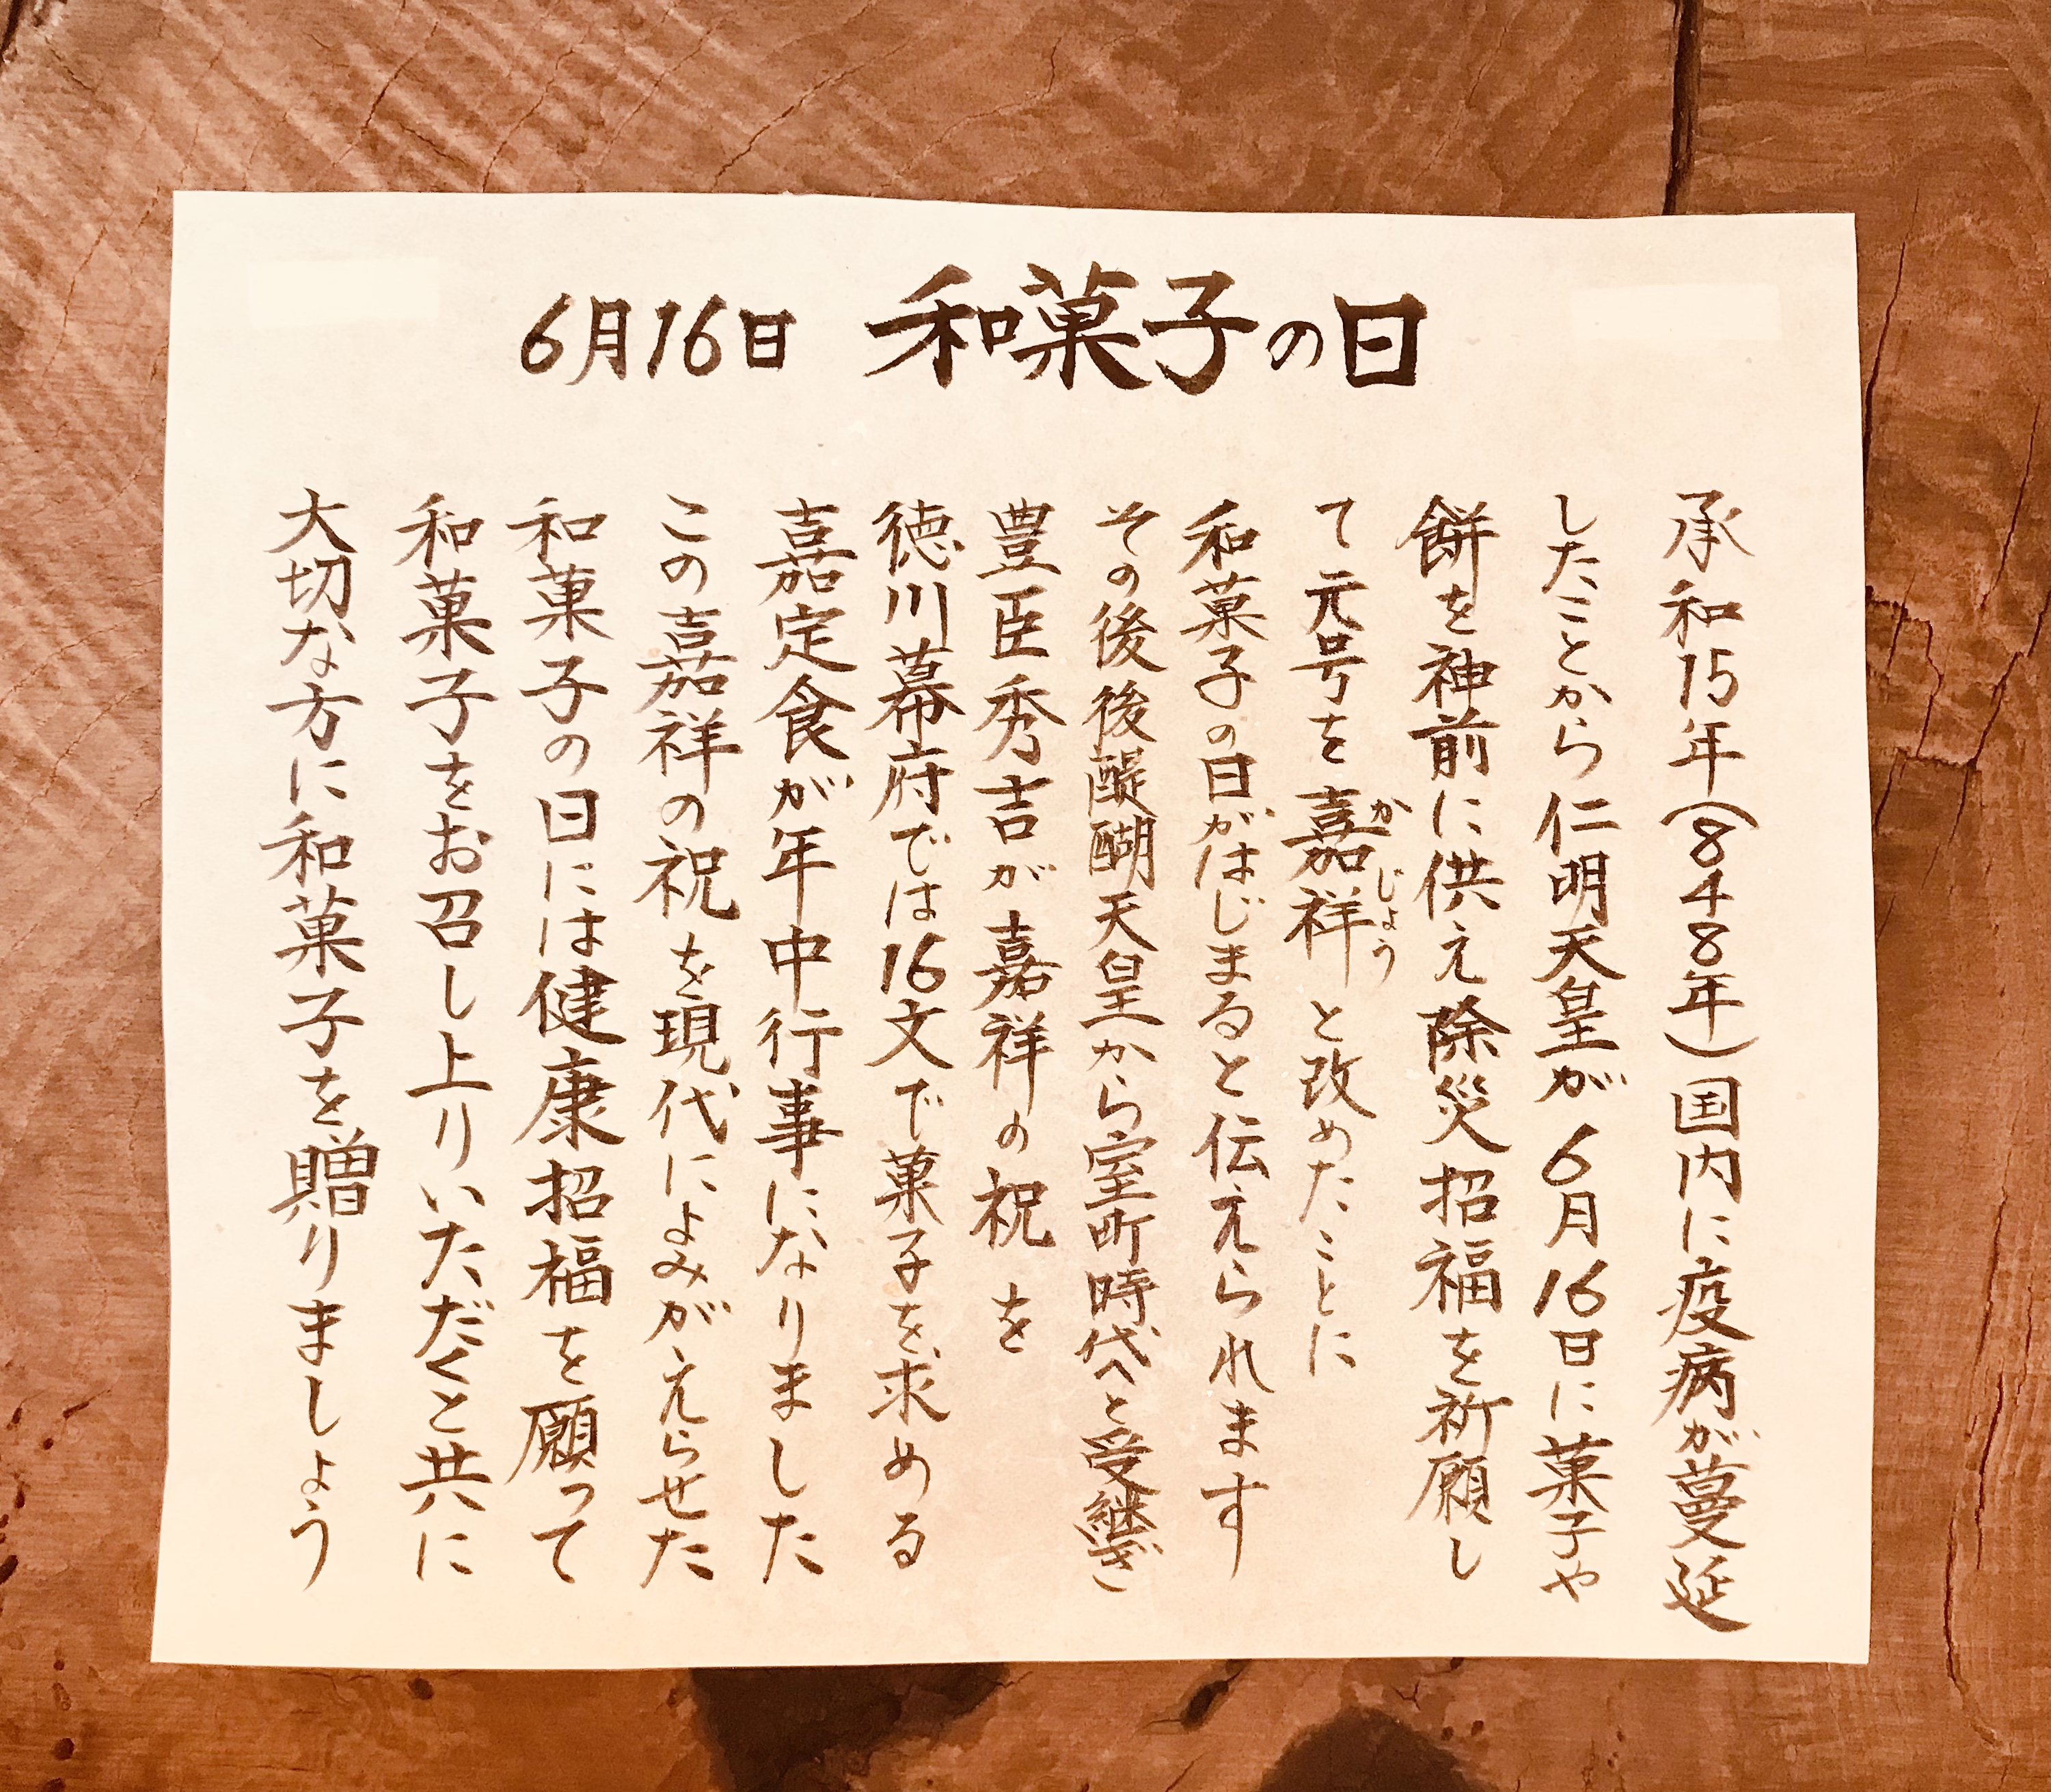 6月16日 和菓子の日
承和15年(848年)国内に疫病が蔓延
したことから仁明天皇が6月16日に菓子や
餅を神前に供え除災招福を祈願し
て元号を嘉祥と改めたことに
かじょう
和菓子の日がはじまると伝えられます
その後後醍醐天皇から室町時代へと受継ぎ
豊臣秀吉が嘉祥の祝を
徳川幕府では16文で菓子を求める
嘉定食が年中行事になりました
この嘉祥の祝を現代によみがえらせた
和菓子の日には健康招福を願って
和菓子をお召し上りいただくと共に
大切な方に和菓子を贈りましょう